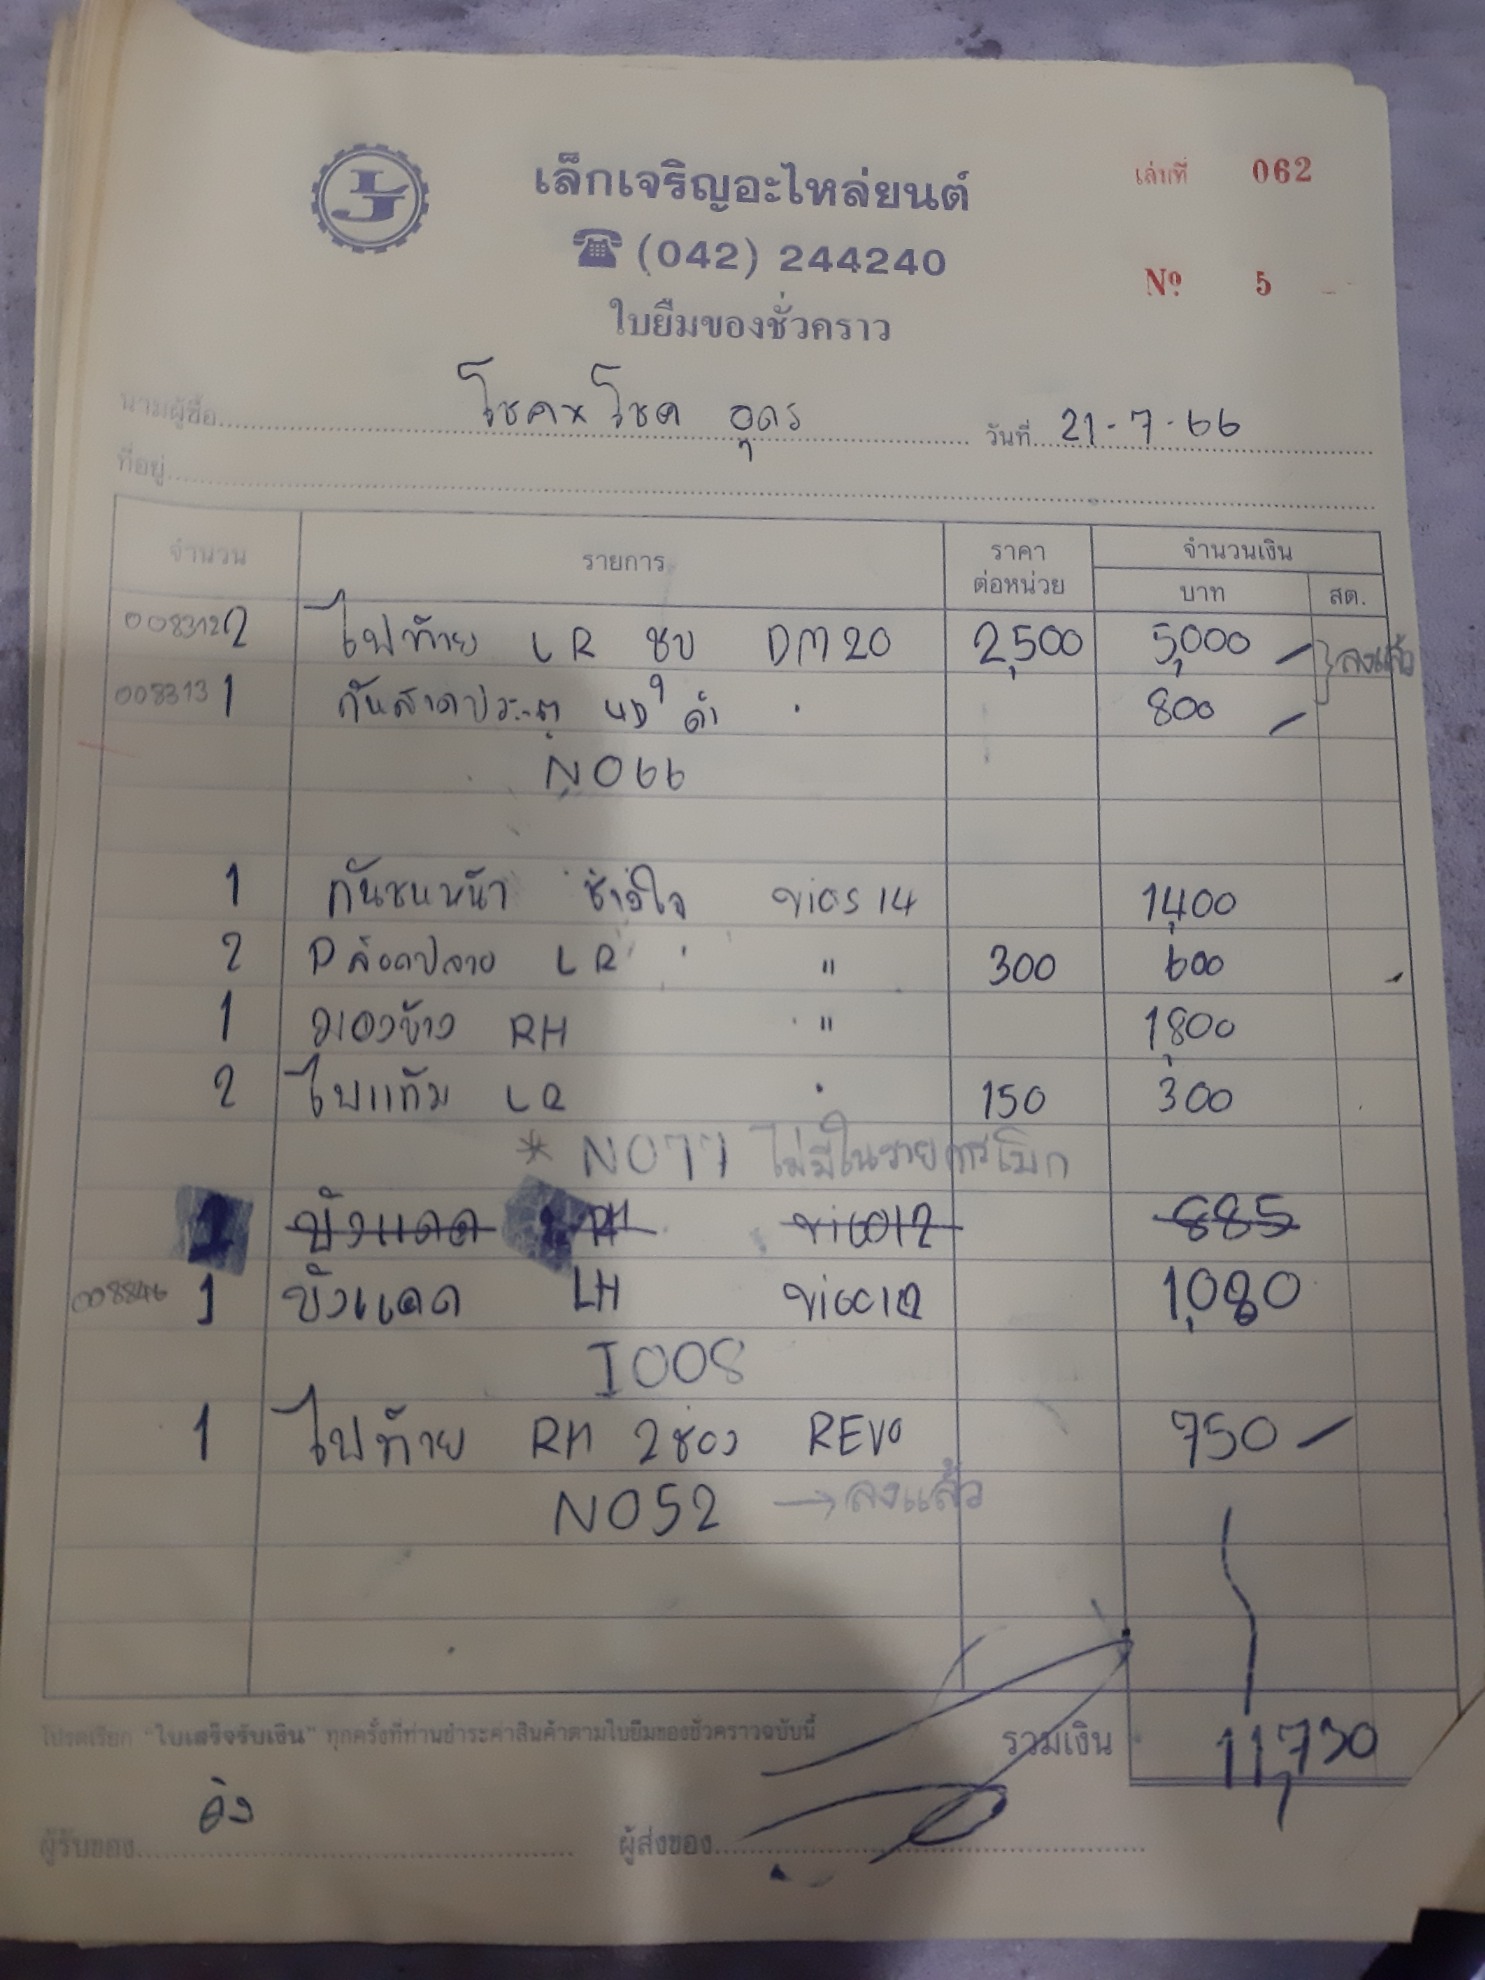 LJ
เล็กเจริญอะไหล่ยนต์
เล่มที่ 062
(042) 244240
Nº 5
ใบยืมของชั่วคราว
นามผู้ซื้อ โชค x โชค อุดร วันที่ 21-7-66
ที่อยู่
จำนวน รายการ ราคาต่อหน่วย จำนวนเงิน
บาท สต.
008312 2 ไฟท้าย LR ชบ DM20 2,500 5,000 ลงแล้ว
008313 1 กันสาดประตู ดำ 800
N066
1 กันชนหน้า vios 14 1,400
2 LR " 300 600
1 มองข้าง RH " 1,800
2 ไฟแก้ม LR 150 300
* N077 ไม่มีในรายการเบิก
1 บังแดด RH vigo12 885
008846 1 บังแดด LH vigo12 1,080
I008
1 ไฟท้าย RH 2ช่อง REVO 750
N052 → ลงแล้ว
โปรดเรียก "ใบเสร็จรับเงิน" ทุกครั้งที่ท่านชำระค่าสินค้าตามใบยืมของชั่วคราวฉบับนี้ รวมเงิน 11,730
ผู้รับของ ผู้ส่งของ